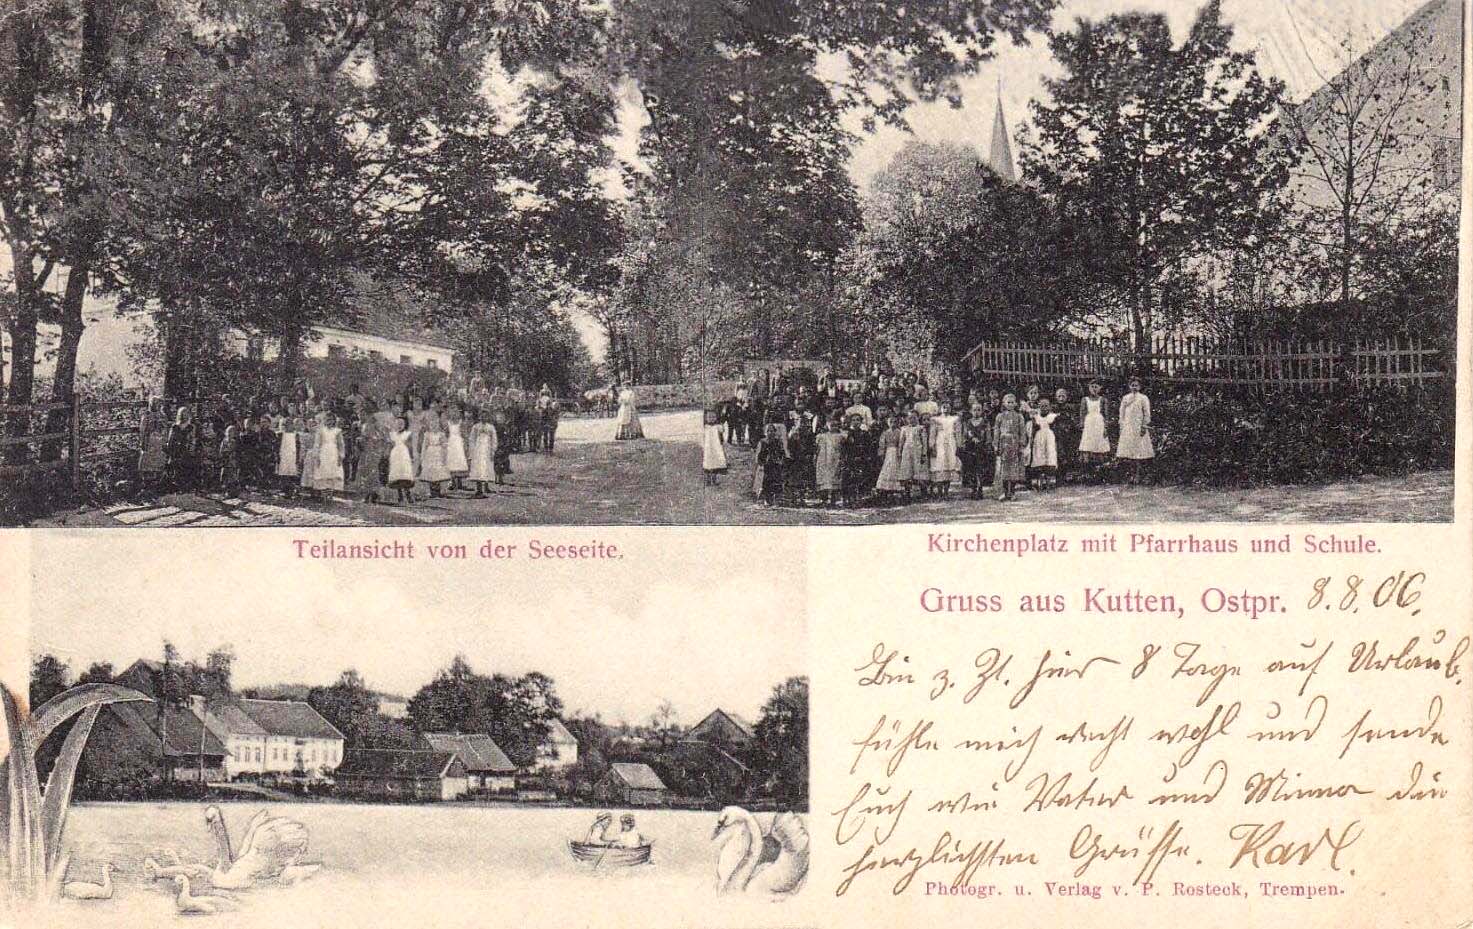 Teilansicht von der Seeseite.
Kirchenplatz mit Pfarrhaus und Schule.
Gruss aus Kutten, Ostpr. 8.8.06.
Bin z. Zt. hier 8 Tage auf Urlaub,
fühle mich recht wohl und sende
Euch wie Vater und Minna die
herzlichsten Grüsse. Karl.
Photogr. u. Verlag v. P. Rosteck, Trempen.